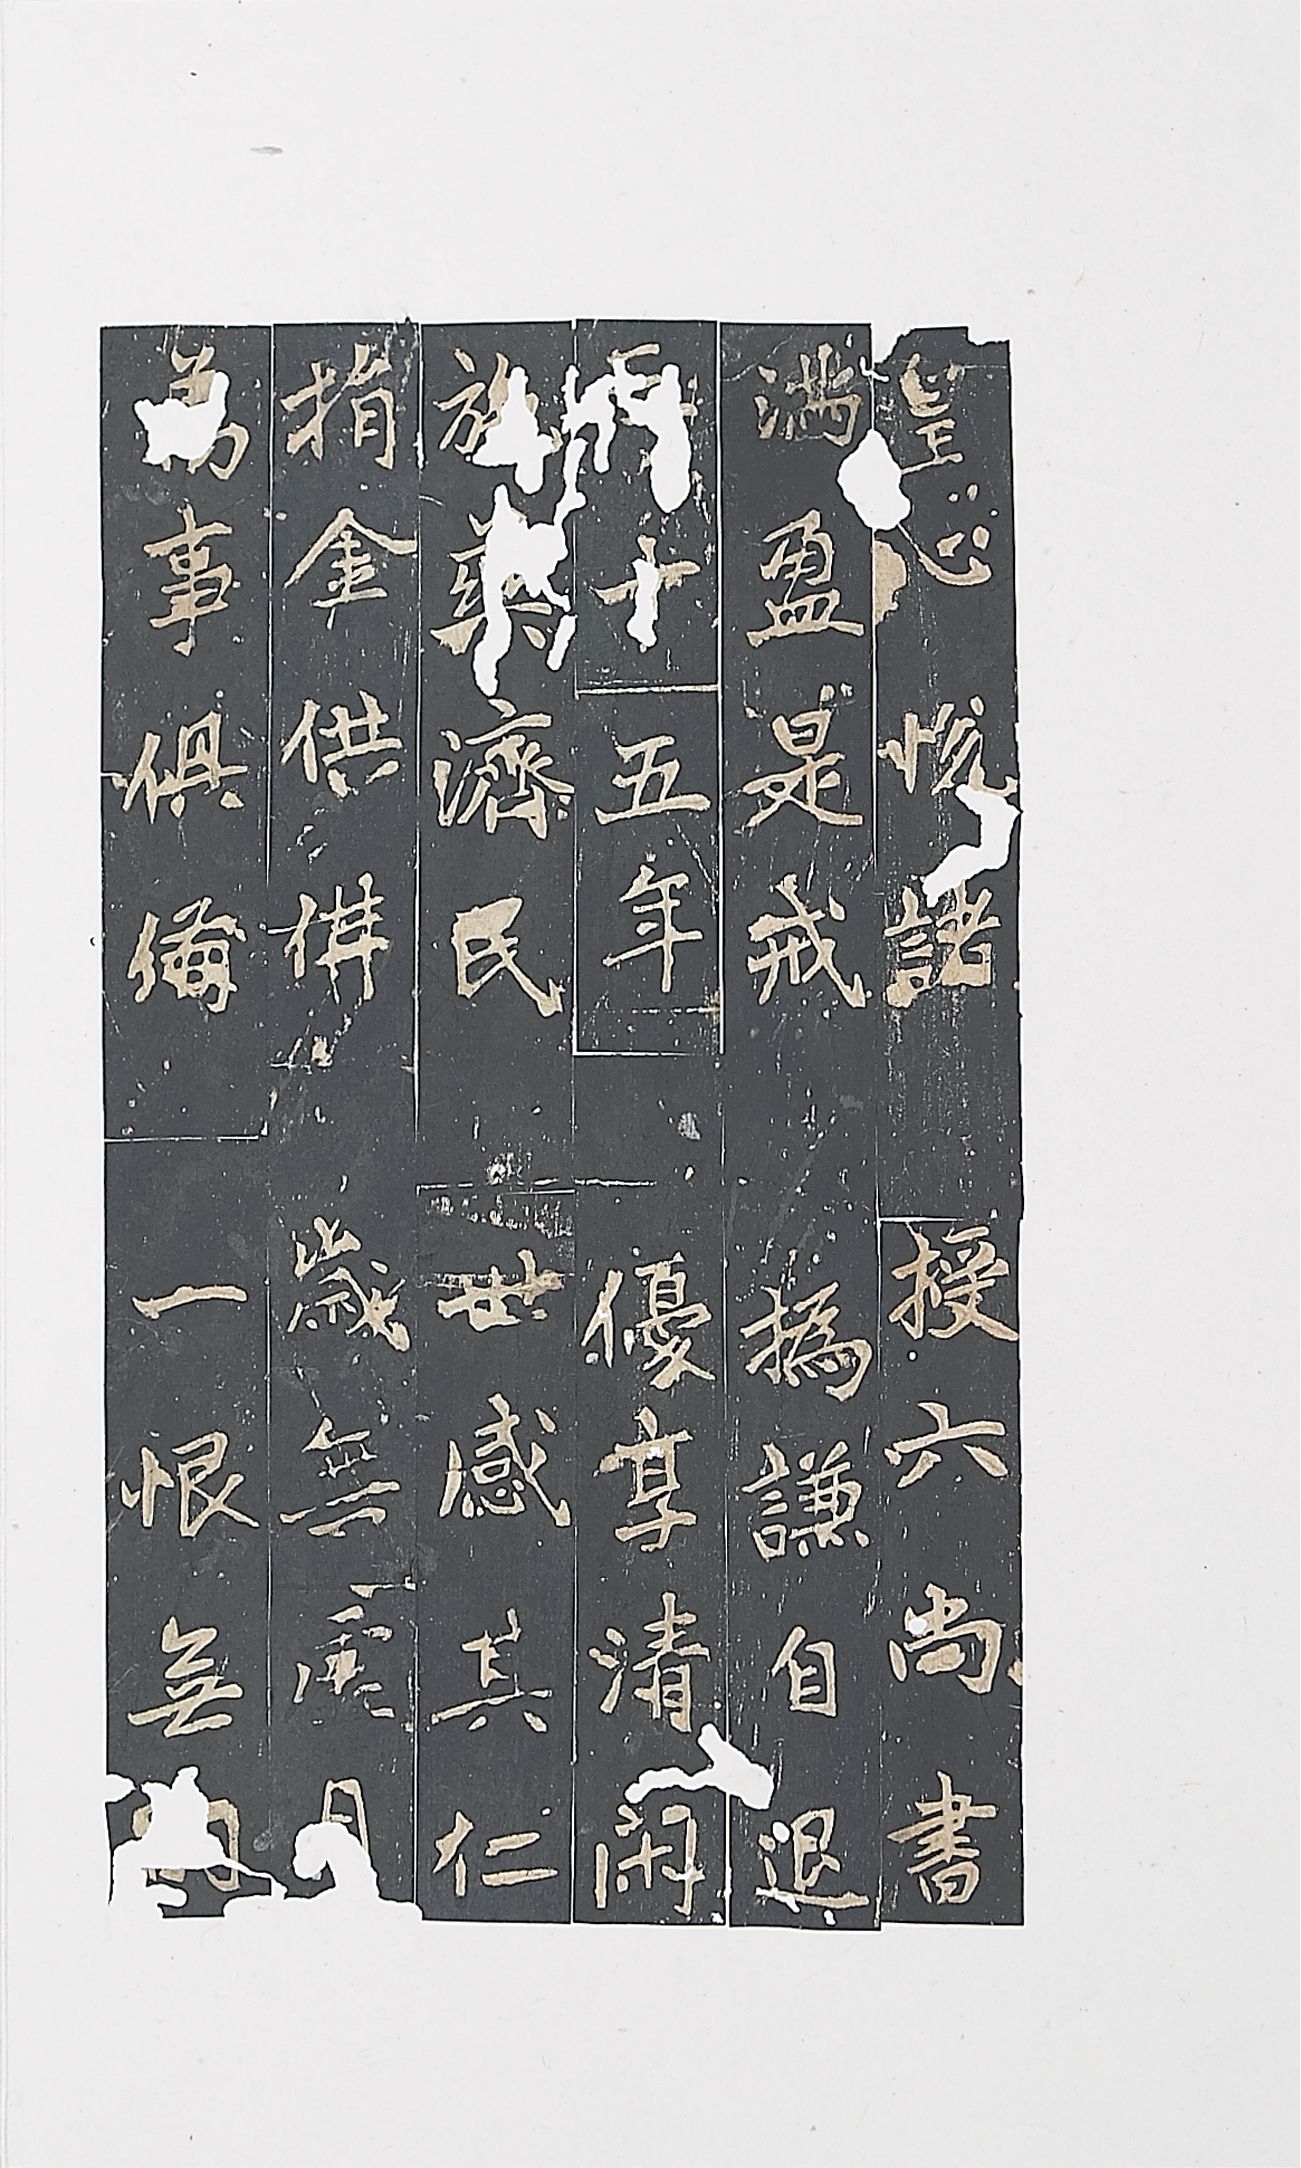 皇心悅諸授六尚書
滿盈是戒撝謙自退
十五年優享清閑
施藥濟民世感其仁
捐金供佛歲無虛月
事俱備一恨無